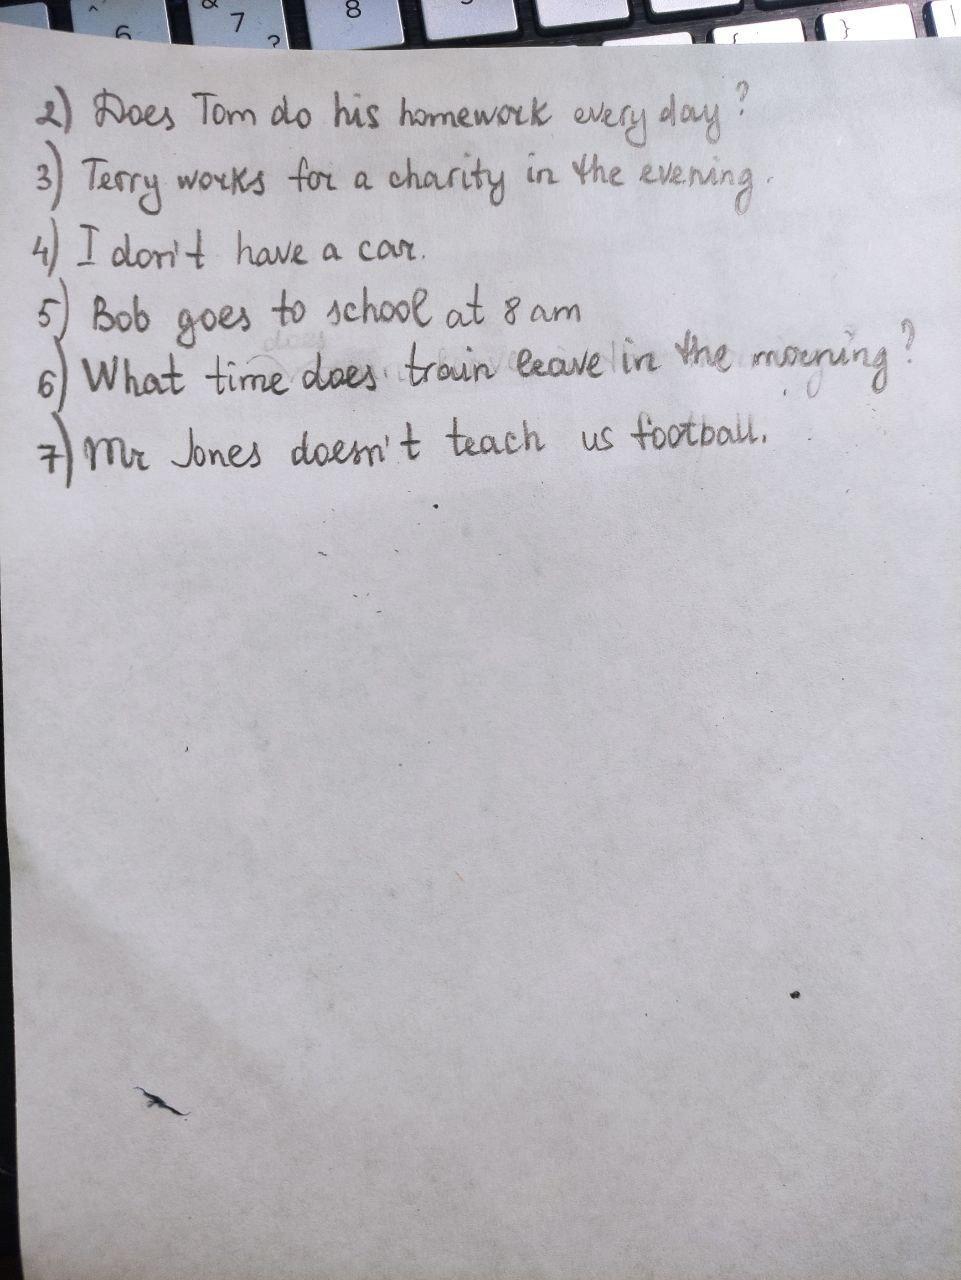 ^ & 8
6 7 ? { }
2) Does Tom do his homework every day?
3) Terry works for a charity in the evening.
4) I don't have a car.
5) Bob goes to school at 8 am
does
6) What time does train leave in the morning?
7) Mr Jones doesn't teach us football.